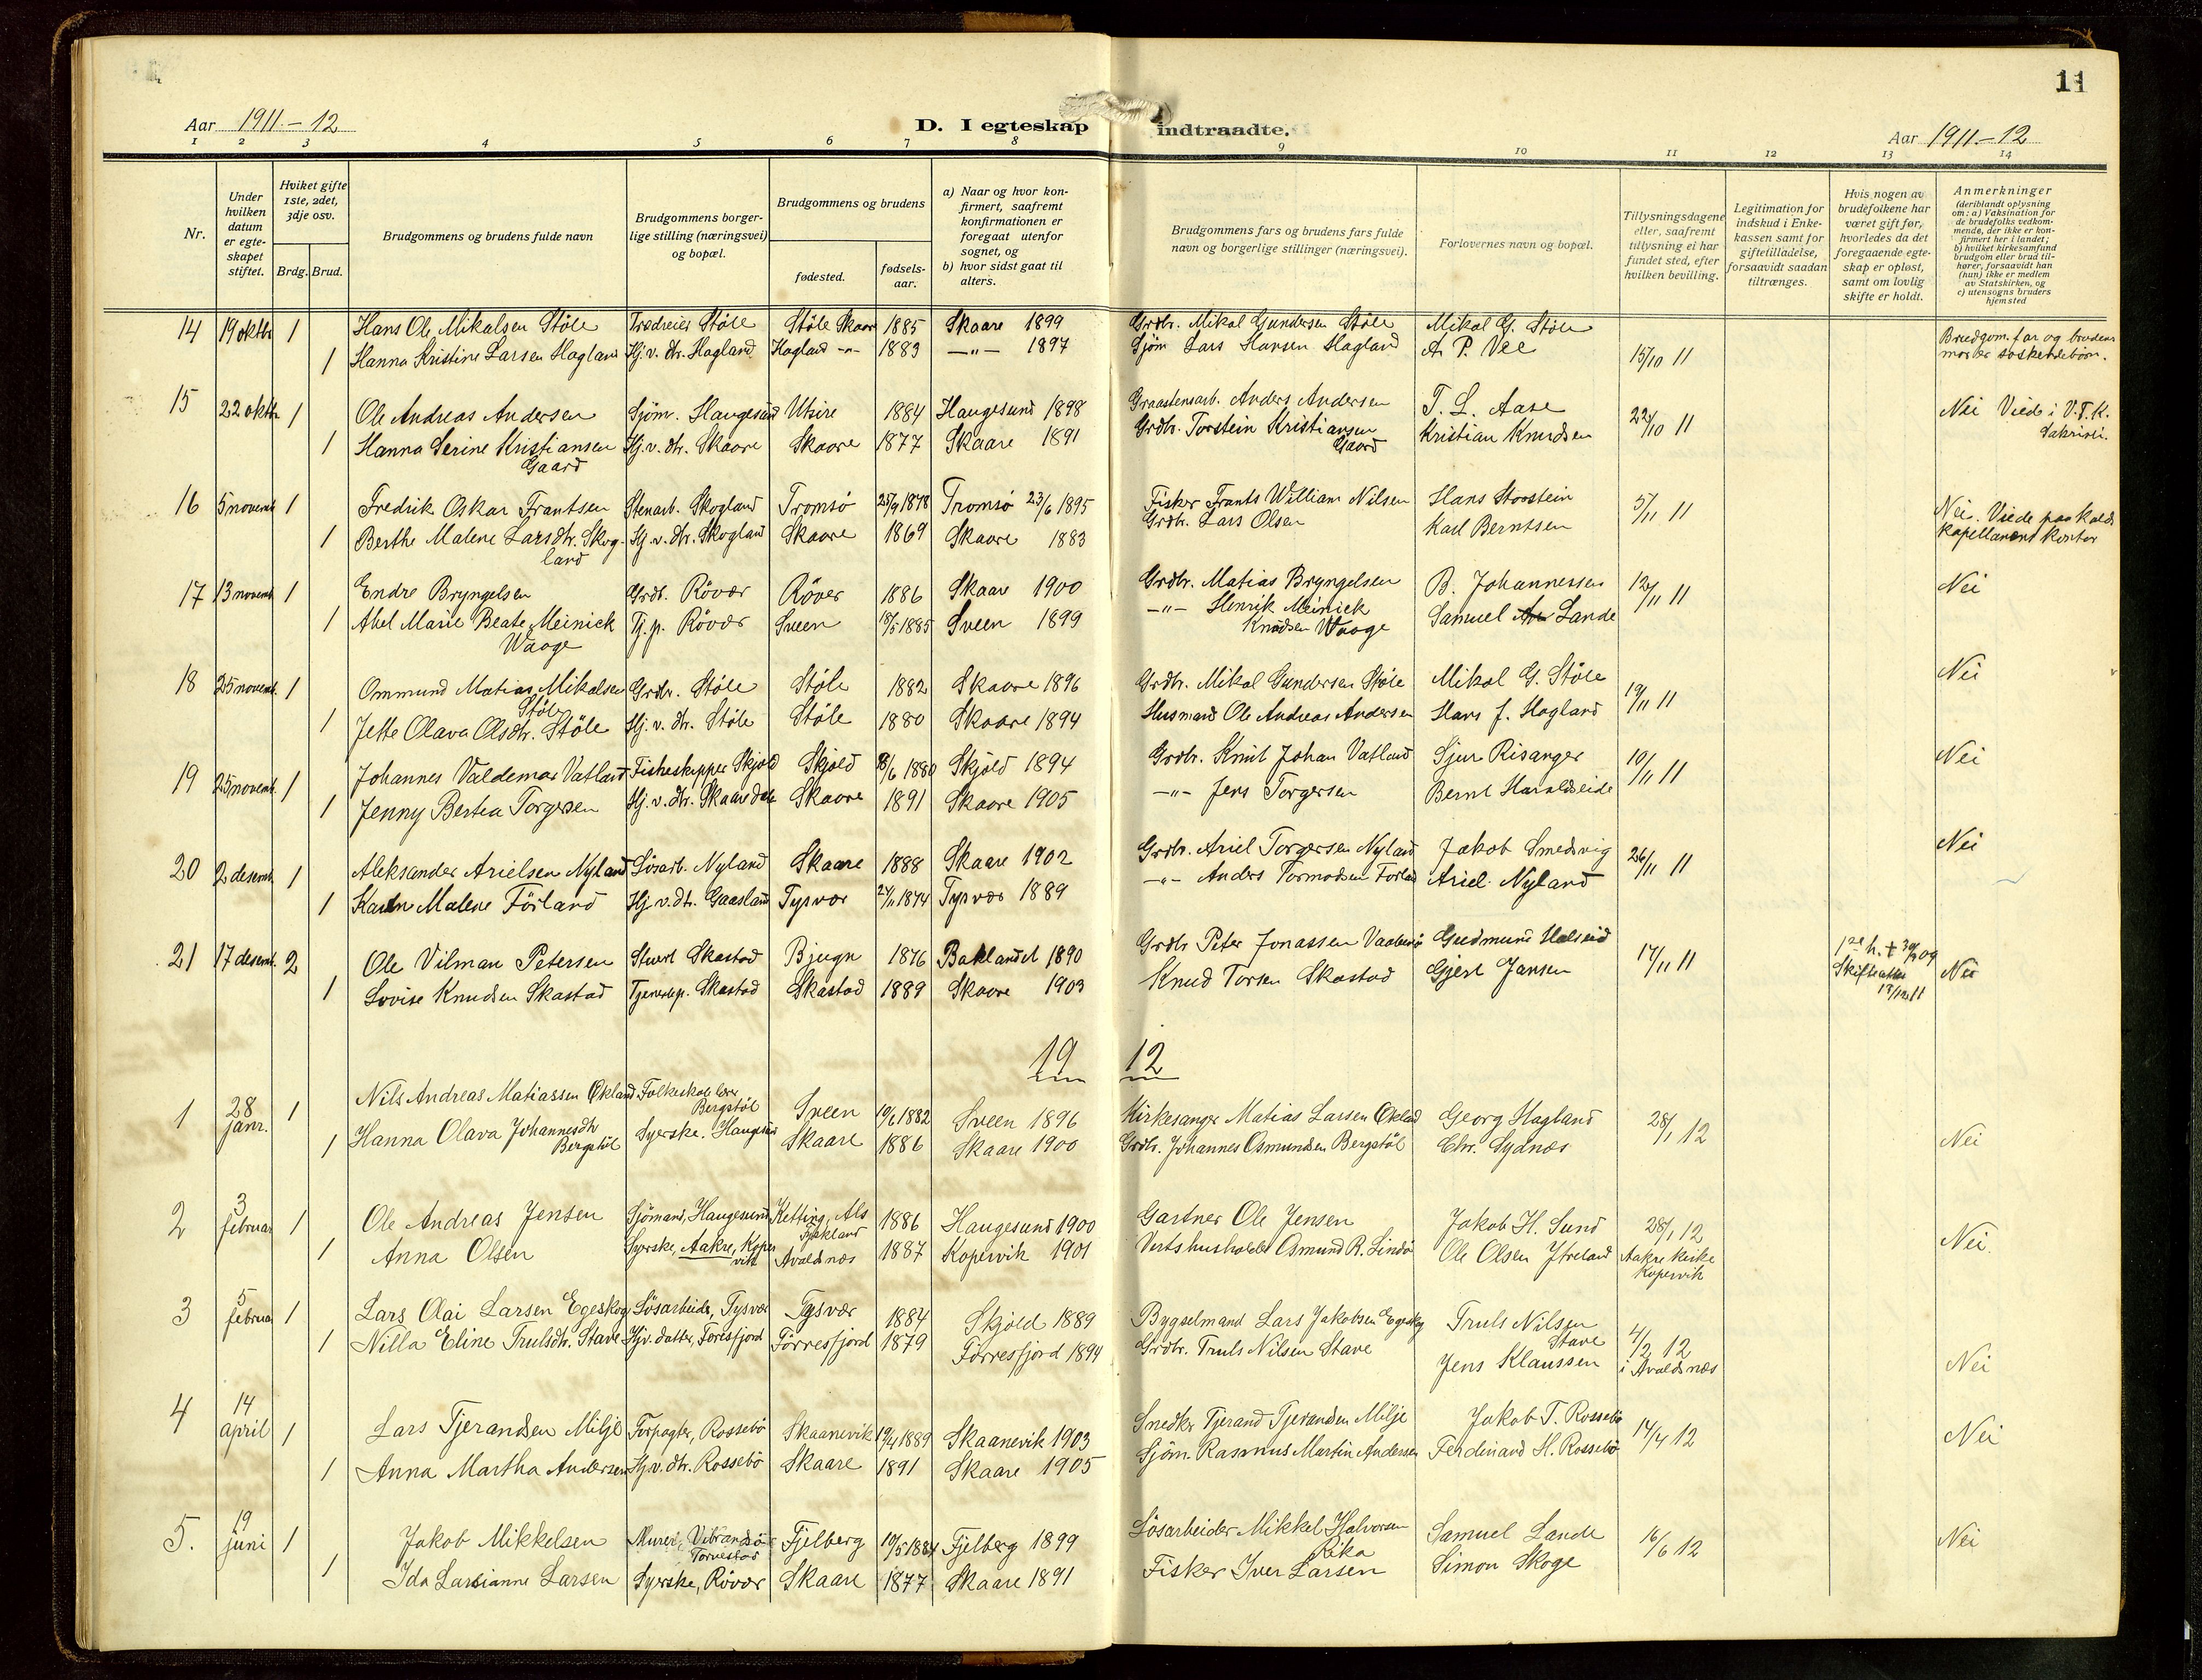 11
Aar 1911-12
D. I egteskap indtraadte.
Aar 1911-12
1 2 3 4 5 6 7 8 9 10 11 12 13 14
Nr.
Under hvilken datum er egteskapet stiftet.
Hviket gifte 1ste, 2det, 3dje osv.
Brdg. Brud.
Brudgommens og brudens fulde navn
Brudgommens borgerlige stilling (næringsvei) og bopæl.
Brudgommens og brudens
fødested.
fødselsaar.
a) Naar og hvor konfirmert, saafremt konfirmationen er foregaat utenfor sognet, og
b) hvor sidst gaat til alters.
Brudgommens fars og brudens fars fulde navn og borgerlige stillinger (næringsvei).
Forlovernes navn og bopæl.
Tillysningsdagene eller, saafremt tillysning ei har fundet sted, efter hvilken bevilling.
Legitimation for indskud i Enkekassen samt for giftetilladelse, forsaavidt saadan tiltrænges.
Hvis nogen av brudefolkene har været gift før, hvorledes da det foregaaende egteskap er opløst, samt om lovlig skifte er holdt.
Anmerkninger (deriblandt oplysning om: a) Vaksination for de brudefolks vedkommende, der ikke er konfirmert her i landet; b) hvilket kirkesamfund brudgom eller brud tilhører, forsaavidt han (hun) ikke er medlem av Statskirken, og c) utensogns bruders hjemsted
14 19 oktbr 1 Hans Ole Mikalsen Stöle Stöle Stöle Skaare 1885 Skaare 1899 Grdbr. Mikal Gundersen Stöle Mikal G. Stöle Brudgom. far og brudens
1 Hanna Kristine Larsen Hagland Hj. v. dtr. Hagland Hagland -"- 1883 -"- 1897 Sjöm Lars Hansen Hagland A. P. Vee 15/10 11 mor er söskendebörn.
15 22 oktbr 1 Ole Andreas Andersen Sjöm. Haugesund Utsire 1884 Haugesund 1898 Graastensarb. Anders Andersen T. L. Aase 22/10 11 Nei Viede i V.F.K.
1 Hanna Serine Kristiansen Hj. v. dtr. Skaare Skaare 1877 Skaare 1891 Grdbr. Torstein Kristiansen Kristian Knudsen Sakristi.
Gaard Gaard
16 5 novemb 1 Fredrik Oskar Frantsen Stenarb. Skogland Tromsö 25/9 1878 Tromsö 23/6 1895 Fisker Frants William Nilsen Hans Storstein 5/11 11 Nei. Viede paa kald.
1 Berthe Malene Larsdtr. Skog- Hj. v. dtr. Skogland Skaare 1869 Skaare 1883 Grdbr. Lars Olsen Karl Berntsen kapellanens kontor
land
17 13 novemb 1 Endre Bryngelsen Grdb. Rövær Röver 1886 Skaare 1900 Grdbr. Matias Bryngelsen B. Johannessen 12/11 11 Nei
1 Abel Marie Beate Meinick Tj. p. Rövær Sveen 18/5 1885 Sveen 1899 -"- Henrik Meinick Samuel Lande
Waage Knudsen Waage
18 25 novemb. 1 Ommund Matias Mikalsen Grdbr. Stöle Stöle 1882 Skaare 1896 Grdbr. Mikal Gundersen Stöle Mikal G. Stöle 19/11 11 Nei
Stöle
1 Jette Olava Olsdtr. Stöle Hj. v. dtr. Stöle Stöle 1880 Skaare 1894 Husmand Ole Andreas Andersen Hans J. Hagland
19 25 novemb. 1 Johannes Valdemar Vatland Fiskeskipper Skjold Skjold 1880 Skjold 1894 Grdbr. Knut Johan Vatland Sjur Risanger 19/11 11 Nei
1 Jenny Bertea Torgersen Hj. v. dtr. Skaaredal Skaare 1891 Skaare 1905 -"- Jens Torgersen Bernt Haraldseide
20 2 desemb. 1 Aleksander Arielsen Nyland Lösarb. Nyland Skaare 1888 Skaare 1902 Grdbr. Ariel Torgersen Nyland Jakob Smedsvig 26/11 11 Nei
1 Karen Malene Förland Hj. v. dtr. Gaasland Tysvær 1874 Tysvær 1889 -"- Anders Tormodsen Förland Ariel Nyland
21 17 desemb. 2 Ole Vilman Petersen Stuert Skastad Bjugn 1876 Baklandet 1890 Grdbr Peter Jonassen Gudmund Halseid 17/11 11 Skifteattest Nei
1 Lovise Knudsen Skastad Tjenestep. Skastad Skastad 1889 Skaare 1903 Knud Torsen Skastad Gjert Jansen
19 12
1 28 janr. 1 Nils Andreas Matiassen Økland Folkeskolelærer Bergstöl Sveen 19/6 1882 Sveen 1896 Kirkesanger Matias Larsen Økland Georg Hagland 28/1 12
1 Hanna Olava Johannesdtr Bergstöl Syerske. Haugesund Skaare 1886 Skaare 1900 Grdbr. Johannes Osmundsen Bergstöl Chr. Sydnæs Nei
2 3 februar 1 Ole Andreas Jensen Sjömand, Haugesund Ketting, Als Tyskland 1886 Haugesund 1900 Gartner Ole Jensen Jakob H. Sund 28/1 12
1 Anna Olsen Syerske, Aakre, Kopervik Avaldsnæs 1887 Kopervik 1901 Vertshusholder Osmund R. Lindö Ole Olsen Ytreland Aakre kirke Kopervik Nei.
3 5 februar 1 Lars Olai Larsen Egeskog Lösarbeider, Tysvær Tysvær 1884 Skjold 1889 Bygselmand Lars Jakobsen Egeskog Truls Nilsen Stave 4/2 12
1 Nilla Eline Trulsdtr. Stave Hjv. datter, Förresfjord Förresfjord 1879 Förresfjord 1894 Grdbr. Truls Nilsen Stave Jens Klaussen i Avaldsnæs Nei
4 14 april 1 Lars Tjerandsen Milje Forpagter, Rossebö Skaanevik 19/4 1889 Skaanevik 1903 Snedker Tjerand Tjerandsen Milje Jakob T. Rossebö 14/4 12 Nei
1 Anna Martha Andersen Hj. v. dtr. Rossebö Skaare 1891 Skaare 1905 Sjöm. Rasmus Martin Andersen Ferdinand H. Rossebö
5. 19 juni 1 Jakob Mikkelsen Murer, Vibrandsö Torvestad Fjelberg 19/5 1884 Fjelberg 1899 Lösarbeider Mikkel Halvorsen Rika Samuel Lande 16/6 12 Nei
1 Ida Larsianne Larsen Syerske, Rövær Skaare 1877 Skaare 1891 Fisker Iver Larsen Simon Skoge